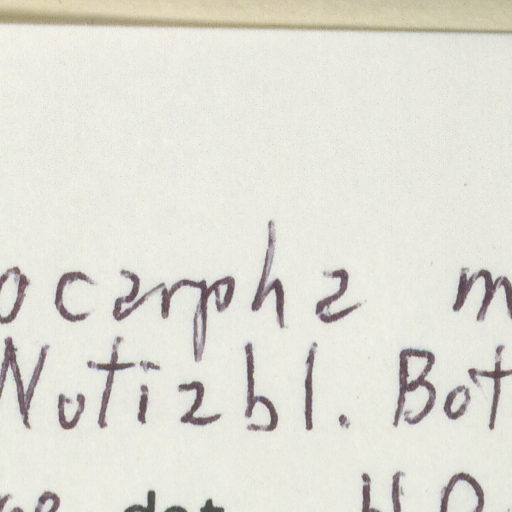 ocarpha m
Notizbl. Bot
det